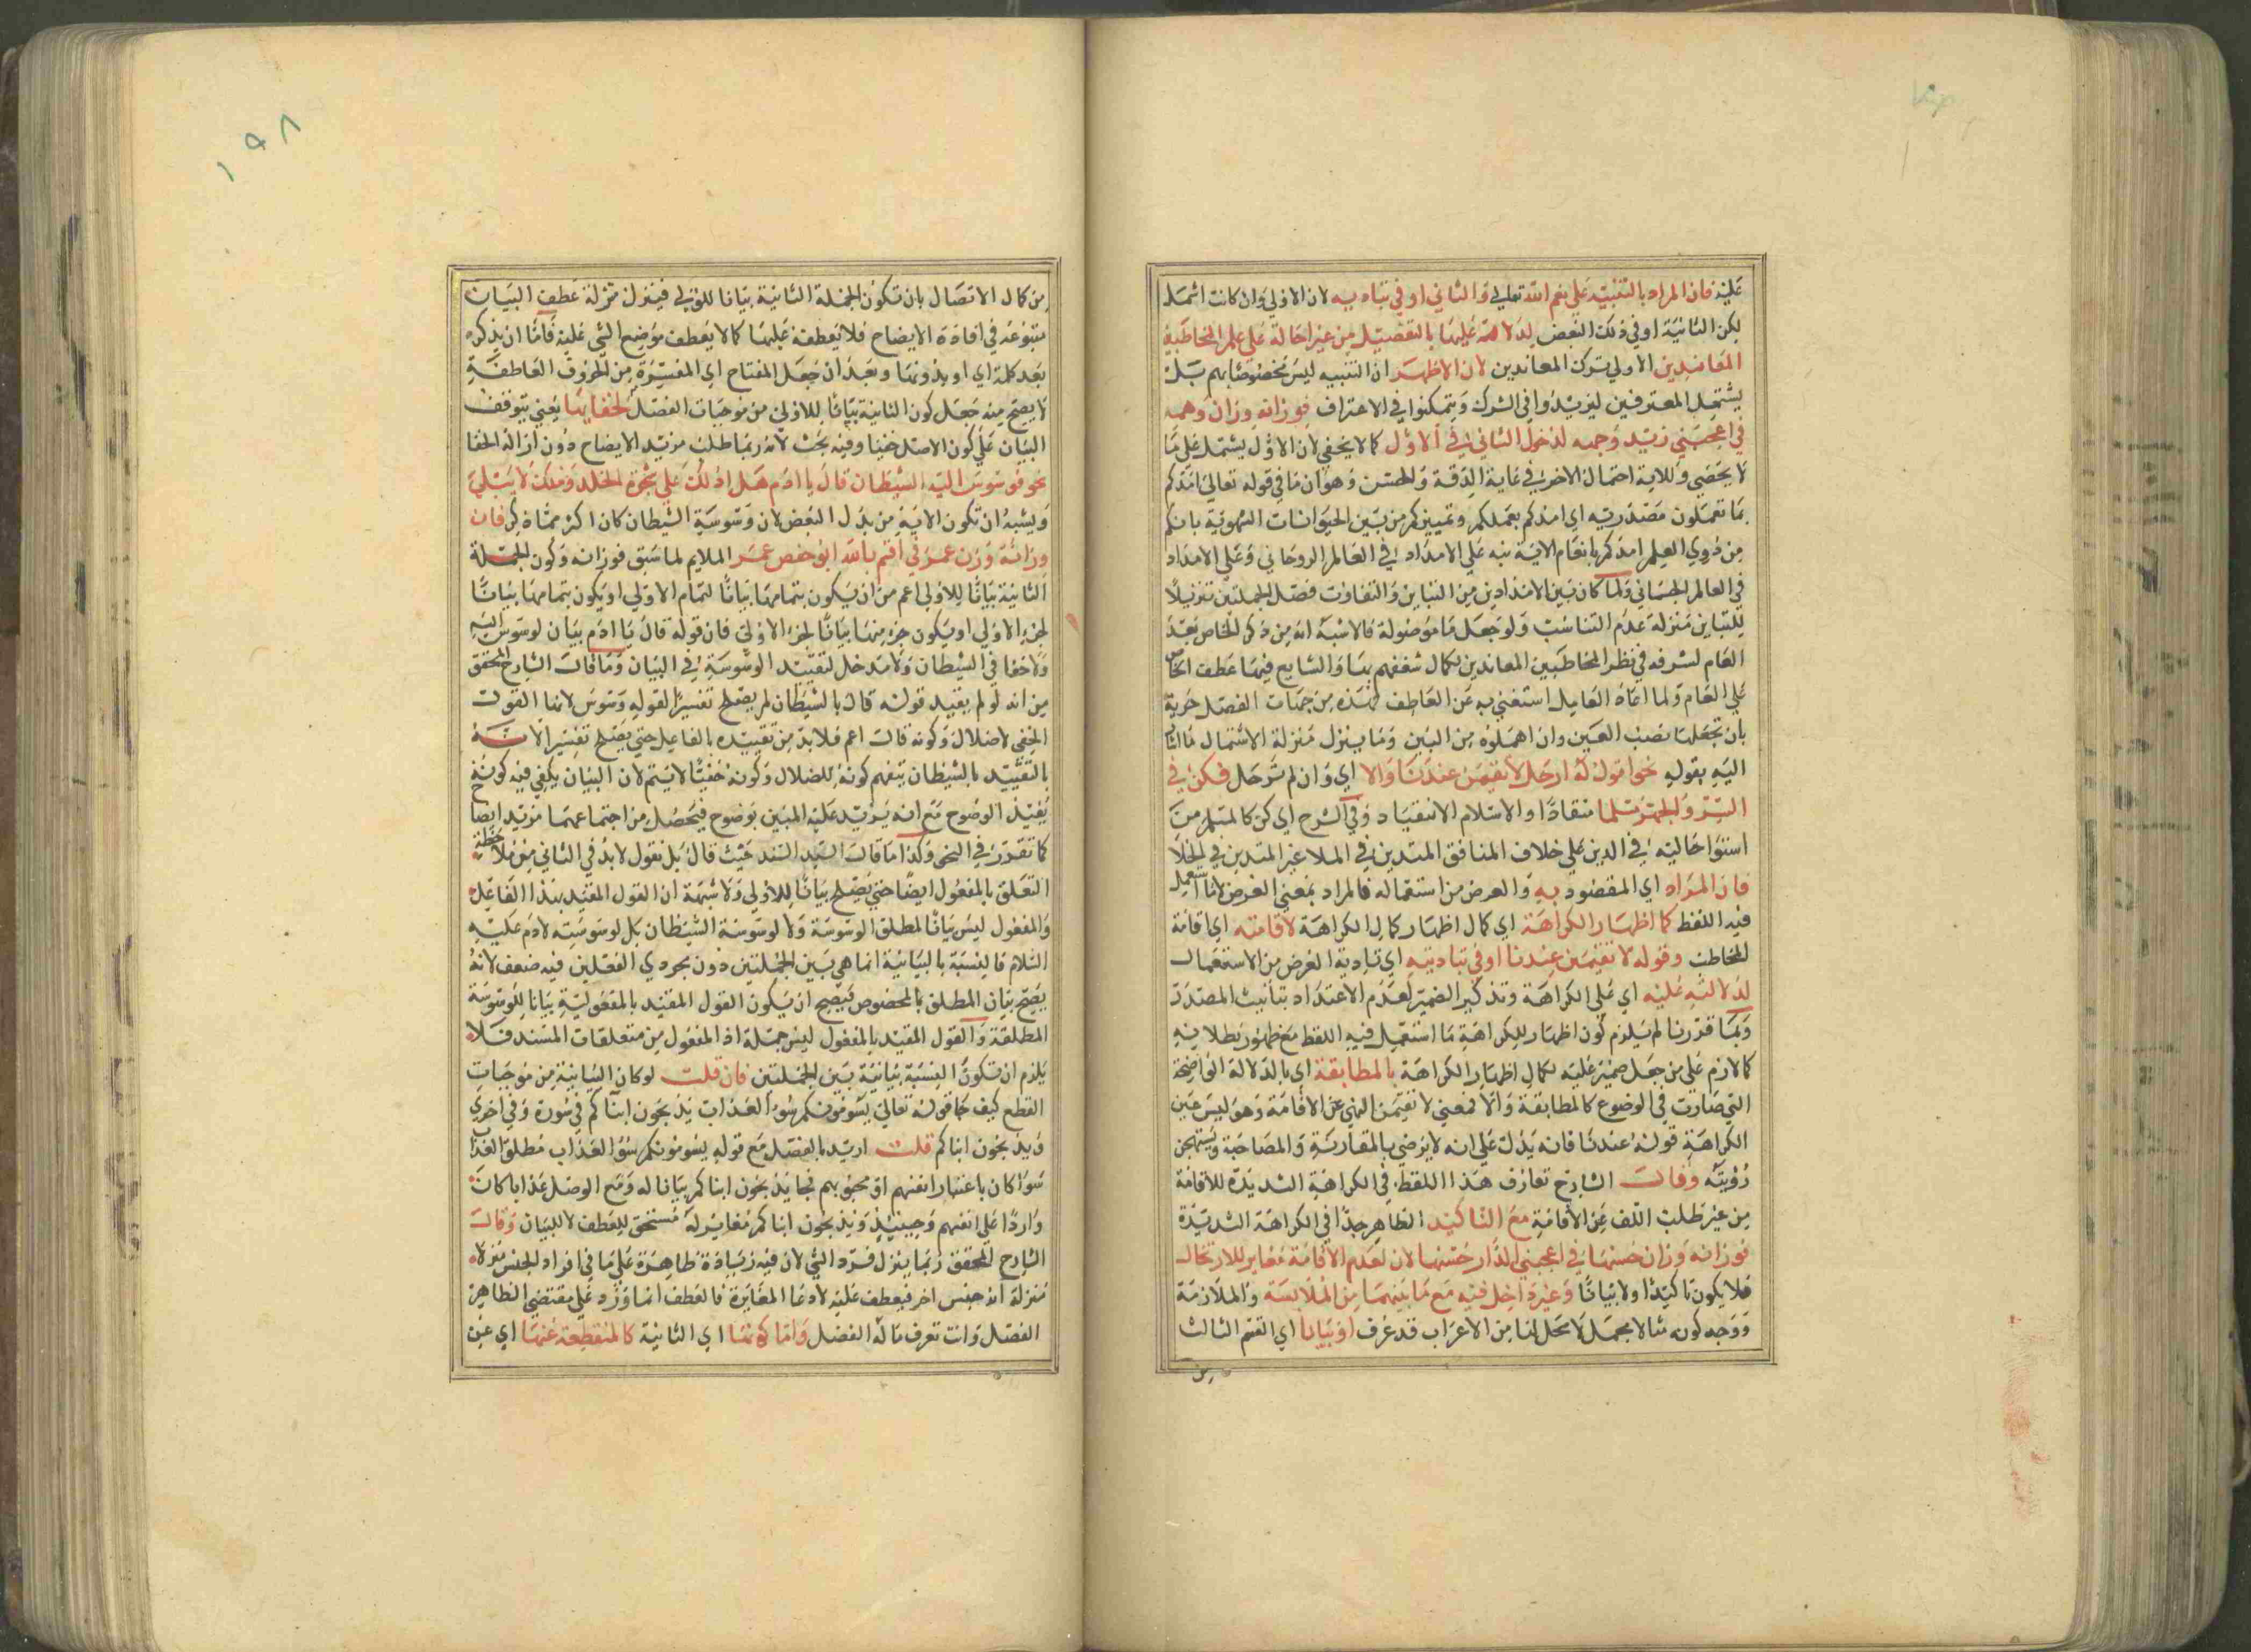 عليه فان المراد بالتنبيه علي نعم الله تعالي والثاني اوفي بتاديبه لان الاولي وان كانت اشمل
لكن الثانية اوفي ذلك البعض لدلالته عليها بالتفصيل من غير احالة علي علم المخاطبين
المعاندين الاولي ترك المعاندين لان الاظهر ان التنبيه ليس مخصوصا بهم بل
يشتمل المعترفين ليزيدوا في الشرك ويتمكنوا في الاعتراف فوزانه وزان وجهه
في اعجبني زيد وجهه لدخول الثاني في الاول كما لا يخفي لان الاول يشتمل علي ما
لا يحصي وللاية احتمال الاخر في غاية الدقة والحسن وهو ان ما في قوله تعالي امدكم
بما تعملون مصدرية اي امدكم بعملكم وتمييزكم من بين الحيوانات بانكم
من ذوي العلم امدكم بانعام الاية نبه علي الامداد في العالم الروحاني وعلي الامداد
في العالم الجسماني ولما كان بين الامدادين من التباين والتفاوت فصل الجملتين تنزيلا
للتباين منزلة عدم التناسب ولو جعل ما موصولة فالاشبه انه من ذكر الخاص بعد
العام لشرفه في نظر المخاطبين المعاندين لكمال شغفهم بها والشايع فيهما عطف الخاص
علي العام ولما اعاد العامل استغني به عن العاطف فهذه من جهات الفصل حرية
بان تجعلها نصب العين وان اهملوه من البين وما ينزل منزلة الاشتمال ما اشار
اليه بقوله نحو اقول له ارحل لا تقيمن عندنا والا اي وان لم ترحل فكن في
السر والجهر مسلما منقادا والاسلام الانقياد وفي الشرح اي كن كالمسلم من
استوا حاليه في الدين علي خلاف المنافق المتدين في الملا غير المتدين في الخلا
فان المراد اي المقصود به والغرض من استعماله فالمراد بمعني الغرض لا ما استعمل
فيه اللفظ كمال اظهار الكراهة اي كمال اظهار كمال الكراهة لاقامته اي اقامة
المخاطب وقوله لا تقيمن عندنا اوفي بتاديته اي تادية الغرض من الاستعمال
لدلالته عليه اي علي الكراهة وتذكير الضمير لعدم الاعتداد بتانيث المصدر
وبما قدرنا لم يلزم كون اظهار للكراهة ما استعمل فيه اللفظ مع ظهور بطلانه
كما لزم علي من جعل ضمير عليه لكمال اظهار الكراهة بالمطابقة اي بالدلالة الواضحة
التي صارت في الوضوع كالمطابقة والا فمعني لا تقيمن النهي عن الاقامة وهو ليس عين
الكراهة قوله عندنا فانه يدل علي انه لا يرضي بالمقاربة والمصاحبة ويستهجن
رؤيته وقال الشارح تعارف هذا اللفظ في الكراهة الشديدة للاقامة
من غير طلب الكف عن الاقامة مع التاكيد الظاهر جدا في الكراهة الشديدة
فوزانه وزان حسنها في اعجبني الدار حسنها لان لعدم الاقامة مغاير للارتحال
فلا يكون تاكيدا ولا بيانا وغير داخل فيه مع ما بينهما من الملابسة والملازمة
ووجه كونه مثالا بجمل لا محل لها من الاعراب قد عرف او بيانا اي القسم الثالث
من
من كمال الاتصال بان تكون الجملة الثانية بيانا للاولي فينزل منزلة عطف البيان
متبوعه في افادة الايضاح فلا يعطف عليها كما لا يعطف موضح الشي عليه فاما ان يذكره
بعد كلمة اي او بدونها وبعد ان جعل المفتاح اي المفسرة من الحروف العاطفة
لا يصح منه جعل كون الثانية بيانا للاولي من موجبات الفصل لخفايها يعني يتوقف
البيان علي كون الاصل خفيا وفيه بحث لانه ربما طلب مزيد الايضاح دون ازالة الخفا
نحو فوسوس اليه الشيطان قال يا ادم هل ادلك علي شجرة الخلد وملك لا يبلي
ويشبه ان تكون الاية من بدل البعض لان وسوسة الشيطان كان اكثر مما ذكر فان
وزانه وزن عمر في اقسم بالله ابو حفص عمر الملايم لما سبق فوزانه وكون الجملة
الثانية بيانا للاولي اعم من ان يكون بتمامها بيانا لتمام الاولي او يكون بتمامها بيانا
لجزء الاولي او يكون جزء منها بيانا لجزء الاولي فان قوله قال يا ادم بيان لوسوس اليه
ولا خفا في الشيطان ولا مدخل لتقييد الوسوسة في البيان وما قال الشارح المحقق
من انه لو لم يقيد قوله قال بالشيطان لم يصلح تفسيرا لقوله وسوس لانها القول
الخفي لاضلال وكونه قال اعم فلا بد من تقييده بالفاعل حتي يصلح تفسيرا لانه
بالتقييد بالشيطان يتفهم كونه للضلال وكونه خفيا لا يتم لان البيان يكفي فيه كونه
يفيد الوضوح مع انه يزيد عليه المبين بوضوح فيحصل من اجتماعهما مزيد ايضاح
كما تقرر في النحو وكذا ما قال السيد السند حيث قال بل نقول لا بد في الثاني من ملاحظة
التعلق بالمفعول ايضا حتي يصلح بيانا للاولي ولا شبهة ان القول المقيد بهذا الفاعل
والمفعول ليس بيانا لمطلق الوسوسة ولا لوسوسة الشيطان بل لوسوسته لادم عليه
السلام فالنسبة بالبيانية انما هي بين الجملتين دون مجردي الفعلين فيه ضعف لانه
يصح بيان المطلق بالمخصوص فيصح ان يكون القول المقيد بالمفعولية بيانا للوسوسة
المطلقة والقول المقيد بالمفعول ليس جملة اذ المفعول من متعلقات المسند فلا
يلزم ان تكون النسبة بيانية بين الجملتين فان قلت لو كان البيانية من موجبات
القطع كيف جا قوله تعالي يسومونكم سوء العذاب يذبحون ابناكم في سورة وفي اخري
ويذبحون ابناكم قلت اريد بالفصل مع قوله يسومونكم سوء العذاب مطلق العذاب
سوا كان باعتبار انفسهم او محبوبهم فجا يذبحون ابناكم بيانا له ومع الوصل عذابا كان
واردا علي انفسهم وحينيذ ويذبحون ابناكم مغاير له مستحق للعطف لا للبيان وقال
الشارح المحقق ربما ينزل فرد الشي لان فيه زيادة ظاهرة علي ما في افراد الجنس منزلا
منزلة انه جنس اخر فيعطف عليه لادعا المغايرة فالعطف انما ورد علي مقتضي الظاهر
الفصل وانت تعرف ماله الفضل واما كونها اي الثانية كالمنقطعة عنها اي عن
١٩٨